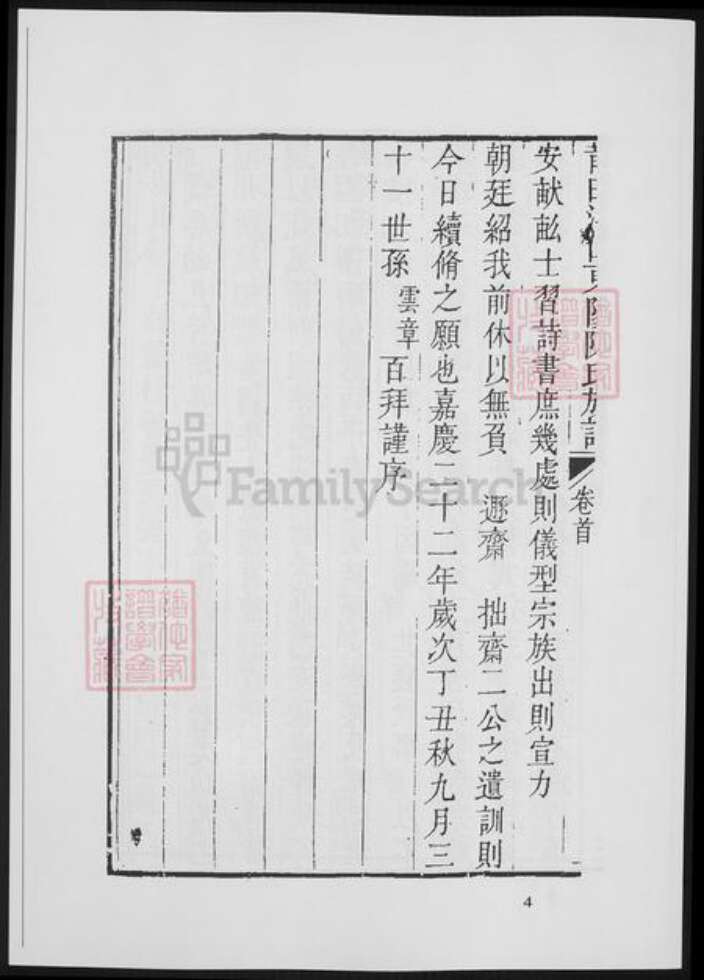 陳氏族譜 卷首
安献畝士習詩書庶幾處則儀型宗族出則宣力
朝廷紹我前休以無負 遯齋 拙齋二公之遺訓則
今日續脩之願也嘉慶二十二年歲次丁丑秋九月三
十一世孫 雲章 百拜謹序
FamilySearch
4